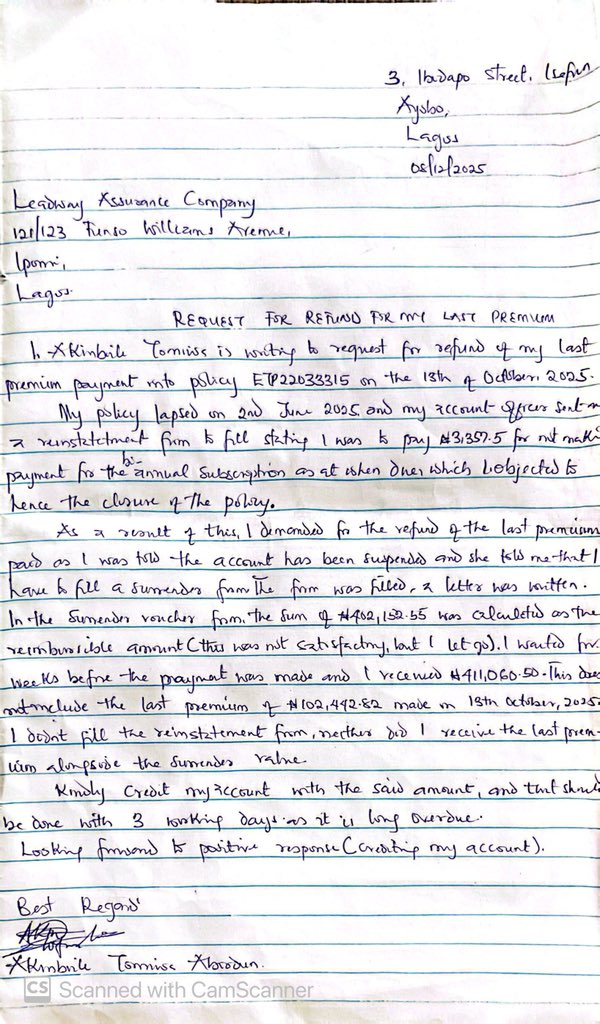 3, Ibidapo Street, Isefun
Ayobo,
Lagos
05/12/2025
Leadway Assurance Company
121/123 Funso Williams Avenue,
Iponri,
Lagos.
REQUEST FOR REFUND FOR MY LAST PREMIUM
I, Akinbile Tomiwa is writing to request for refund of my last
premium payment into policy ETP22033315 on the 13th of October, 2025.
My policy lapsed on 2nd June 2025 and my account officer sent
a reinstatetment form to fill stating I was to pay ₦3,357.5 for not making
payment for the bi-annual subscription as at when due, which I objected to
hence the closure of the policy.
As a result of this, I demanded for the refund of the last premium
paid as I was told the account has been suspended and she told me that I
have to fill a surrender form. The form was filled, a letter was written.
In the surrender voucher form, the sum of ₦402,152.55 was calculated as the
reimbursible amount (this was not satisfactory, but I let go). I waited for
weeks before the payment was made and I received ₦411,060.50. This does
not include the last premium of ₦102,442.82 made on 13th October, 2025.
I didn't fill the reinstatement form, neither did I receive the last prem-
ium alongside the surrender value.
Kindly credit my account with the said amount, and that should
be done with 3 working days as it is long overdue.
Looking forward to positive response (crediting my account).
Best Regard'
Akinbile Tomiwa Abiodun.
CS Scanned with CamScanner